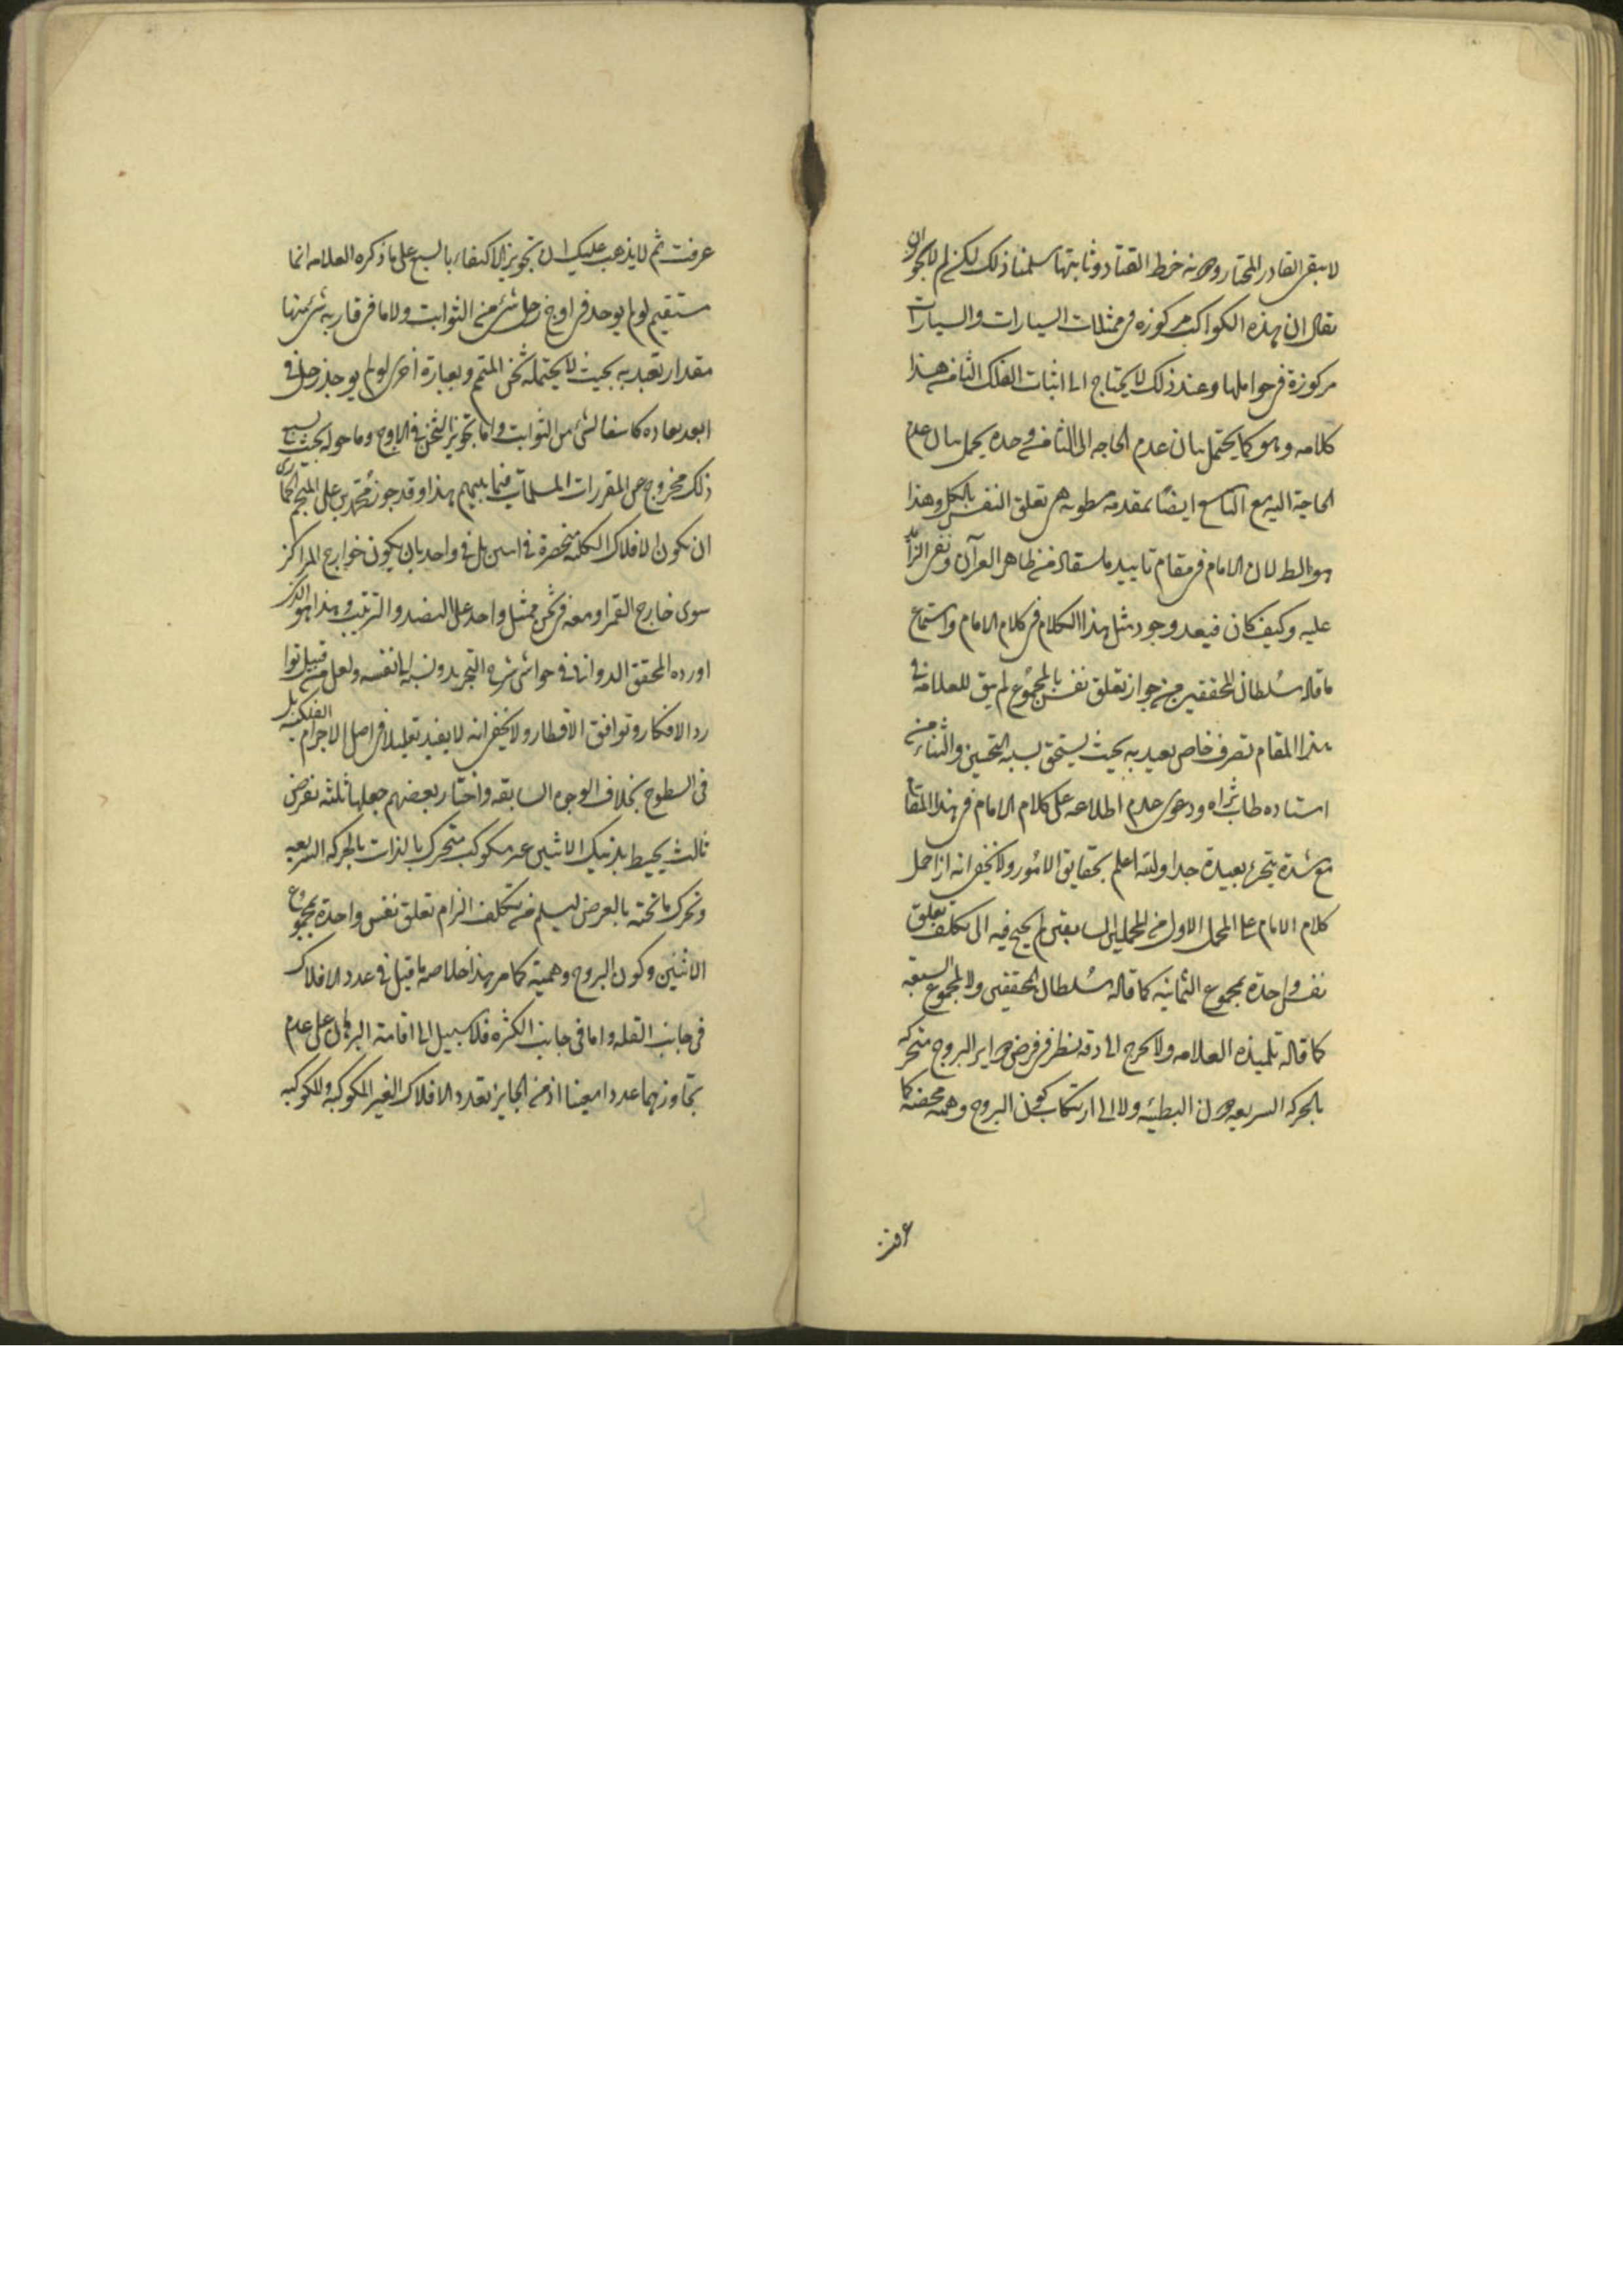 لا ينفى القادر المختار ودونه خرط القتاد وثانيتها سلمنا ذلك لكن لم لا يجوز ان
يقال ان هذه الكواكب مركوزة فى ممثلات السيارات والسيارات
مركوزة فى حواملها وعند ذلك لا يحتاج الى اثبات الفلك الثامن هذا
كلامه وهو كما يحتمل بيان عدم الحاجه الى الثامن وحده يحمل بيان عدم
الحاجة اليه مع التاسع ايضا بمقدمة مطويه هى تعلق النفس بالكل وهذا
هو الظ لان الامام فى مقام تاييد ما استفاده من ظاهر القرآن ونفى الزائد
عليه وكيف كان فبعد وجود مثل هذا الكلام فى كلام الامام واستماع
ما قاله سلطان المحققين من جواز تعلق نفس بالمجموع لم يبق للعلامه فى
هذا المقام تصرف خاص يعبد به بحيث يستحق بسببه التحسين والثناء من
استاده طاب ثراه ودعوى عدم اطلاعه على كلام الامام فى هذا المقام
مع شدة تبحره بعيدة جدا والله اعلم بحقايق الامور ولا يخفى انه اذا حمل
كلام الامام على المحمل الاول من المحملين السابقين لم يحتج فيه الى تكلف تعلق
نفس واحدة بمجموع الثمانيه كما قاله سلطان المحققين ولا بمجموع السبعه
كما قاله تلميذه العلامه ولا يحوج الى دقه نظر فى فرض دواير البروج متحركه
بالحركه السريعه دون البطيئه ولا الى ارتكاب كون البروج وهميه محضة كما
عرفت
عرفت ثم لا يذهب عليك ان تجويز الاكتفاء بالسبع على ما ذكره العلامه انما
يستقيم لو لم يوجد فى اوج زحل شئ من الثوابت ولا ما فى قاربه شئ منها
مقدار تعبد به بحيث لا يحتمله ثخن المتمم وبعبارة اخرى لو لم يوجد زحل فى
ابعد بعاده كاسفا لشئ من الثوابت واما تجويز الثخن فى الاوج وما حوله بحيث يسع
ذلك فخروج عن المقررات المسلمات فيما بينهم هذا وقد جوز محمد بن على المنجم الحمادى
ان تكون الافلاك الكليه منحصرة فى اثنين بل فى واحد بان يكون خوارج المراكز
سوى خارج القمر او معه فى ثخن ممثل واحد على النضد والترتيب وهذا هو الذى
اورده المحقق الدوانى فى حواشى شرح التجريد ونسبه الى نفسه ولعل من قبيل توا
رد الافكار وتوافق الاقطار ولا يخفى انه لا يفيد تعليلا فى اصل الاجرام الفلكيه بل
فى السطوح بخلاف الوجوه السابقه واختار بعضهم جعلها ثلثه بفرض
ثالث يحيط بذينك الاثنين غير مكوكب متحرك بالذات بالحركه السريعه
وتحرك ما تحته بالعرض ليسلم من تكلف الزام تعلق نفس واحدة بمجموع
الاثنين وكون البروج وهمية كما مر هذا خلاصه ما قيل فى عدد الافلاك
فى جانب القله واما فى جانب الكثره فلا سبيل الى اقامة البرهان على عدم
تجاوزها عددا معينا اذ من الجايز تعدد الافلاك الغير المكوكبه والمكوكبه